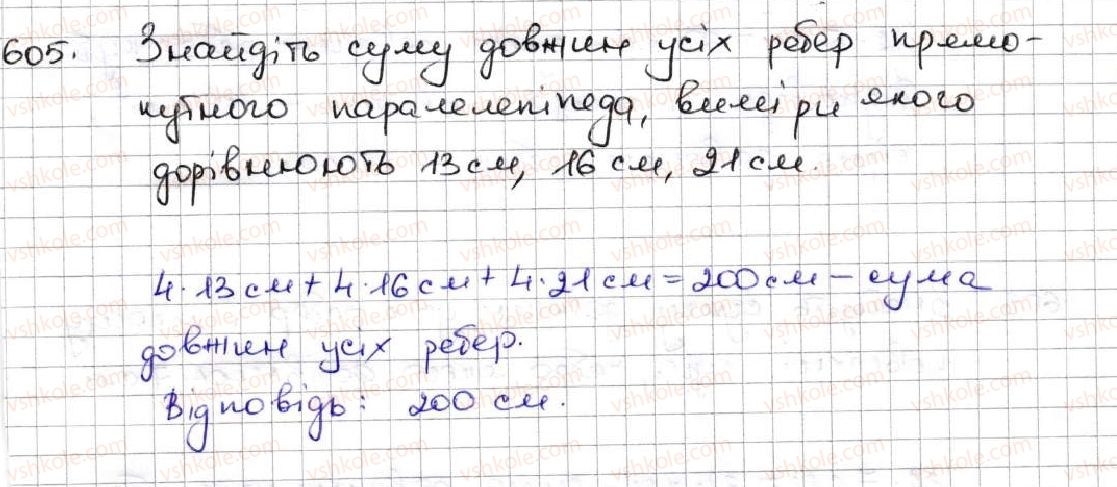 605. Знайдіть суму довжин усіх ребер прямо-
кутного паралелепіпеда, виміри якого
дорівнюють 13 см, 16 см, 21 см.
4·13 см + 4·16 см + 4·21 см = 200 см – сума
довжин усіх ребер.
Відповідь: 200 см.